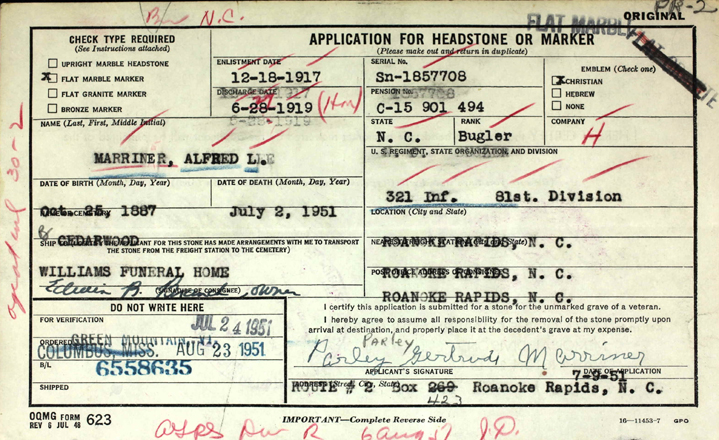 N.C.
PR-2
ORIGINAL
FLAT MARBLE
CHECK TYPE REQUIRED
(See Instructions attached)
UPRIGHT MARBLE HEADSTONE
X FLAT MARBLE MARKER
FLAT GRANITE MARKER
BRONZE MARKER
APPLICATION FOR HEADSTONE OR MARKER
(Please make out and return in duplicate)
ENLISTMENT DATE
12-18-1917
DISCHARGE DATE
6-28-1919 (Hon)
SERIAL No.
Sn-1857708
PENSION No.
C-15 901 494
EMBLEM (Check one)
X CHRISTIAN
HEBREW
NONE
NAME (Last, First, Middle Initial)
MARRINER, ALFRED L.
STATE
N. C.
RANK
Bugler
COMPANY
H
U. S. REGIMENT, STATE ORGANIZATION, AND DIVISION
321 Inf. 81st. Division
DATE OF BIRTH (Month, Day, Year)
Oct 25, 1887
DATE OF DEATH (Month, Day, Year)
July 2, 1951
NAME OF CEMETERY
CEDARWOOD
LOCATION (City and State)
ROANOKE RAPIDS, N. C.
SHIP TO (I CERTIFY THE APPLICANT FOR THIS STONE HAS MADE ARRANGEMENTS WITH ME TO TRANSPORT
THE STONE FROM THE FREIGHT STATION TO THE CEMETERY)
WILLIAMS FUNERAL HOME
(SIGNATURE OF CONSIGNEE) owner
NEAREST FREIGHT STATION (City and State)
ROANOKE RAPIDS, N. C.
POST OFFICE ADDRESS OF CONSIGNEE
ROANOKE RAPIDS, N. C.
DO NOT WRITE HERE
FOR VERIFICATION
JUL 24 1951
ORDERED
GREEN MOUNTAIN, VT.
COLUMBUS, MISS. AUG 23 1951
B/L
6558635
SHIPPED
I certify this application is submitted for a stone for the unmarked grave of a veteran.
I hereby agree to assume all responsibility for the removal of the stone promptly upon
arrival at destination, and properly place it at the decedent's grave at my expense.
Parley
Parley Gertrude Marriner
APPLICANT'S SIGNATURE
DATE OF APPLICATION
7-9-51
ADDRESS (Street, City, State)
ROUTE # 2 Box 269 Roanoke Rapids, N. C.
423
OQMG FORM
REV 6 JUL 48 623
IMPORTANT—Complete Reverse Side
16—11453-7 GPO